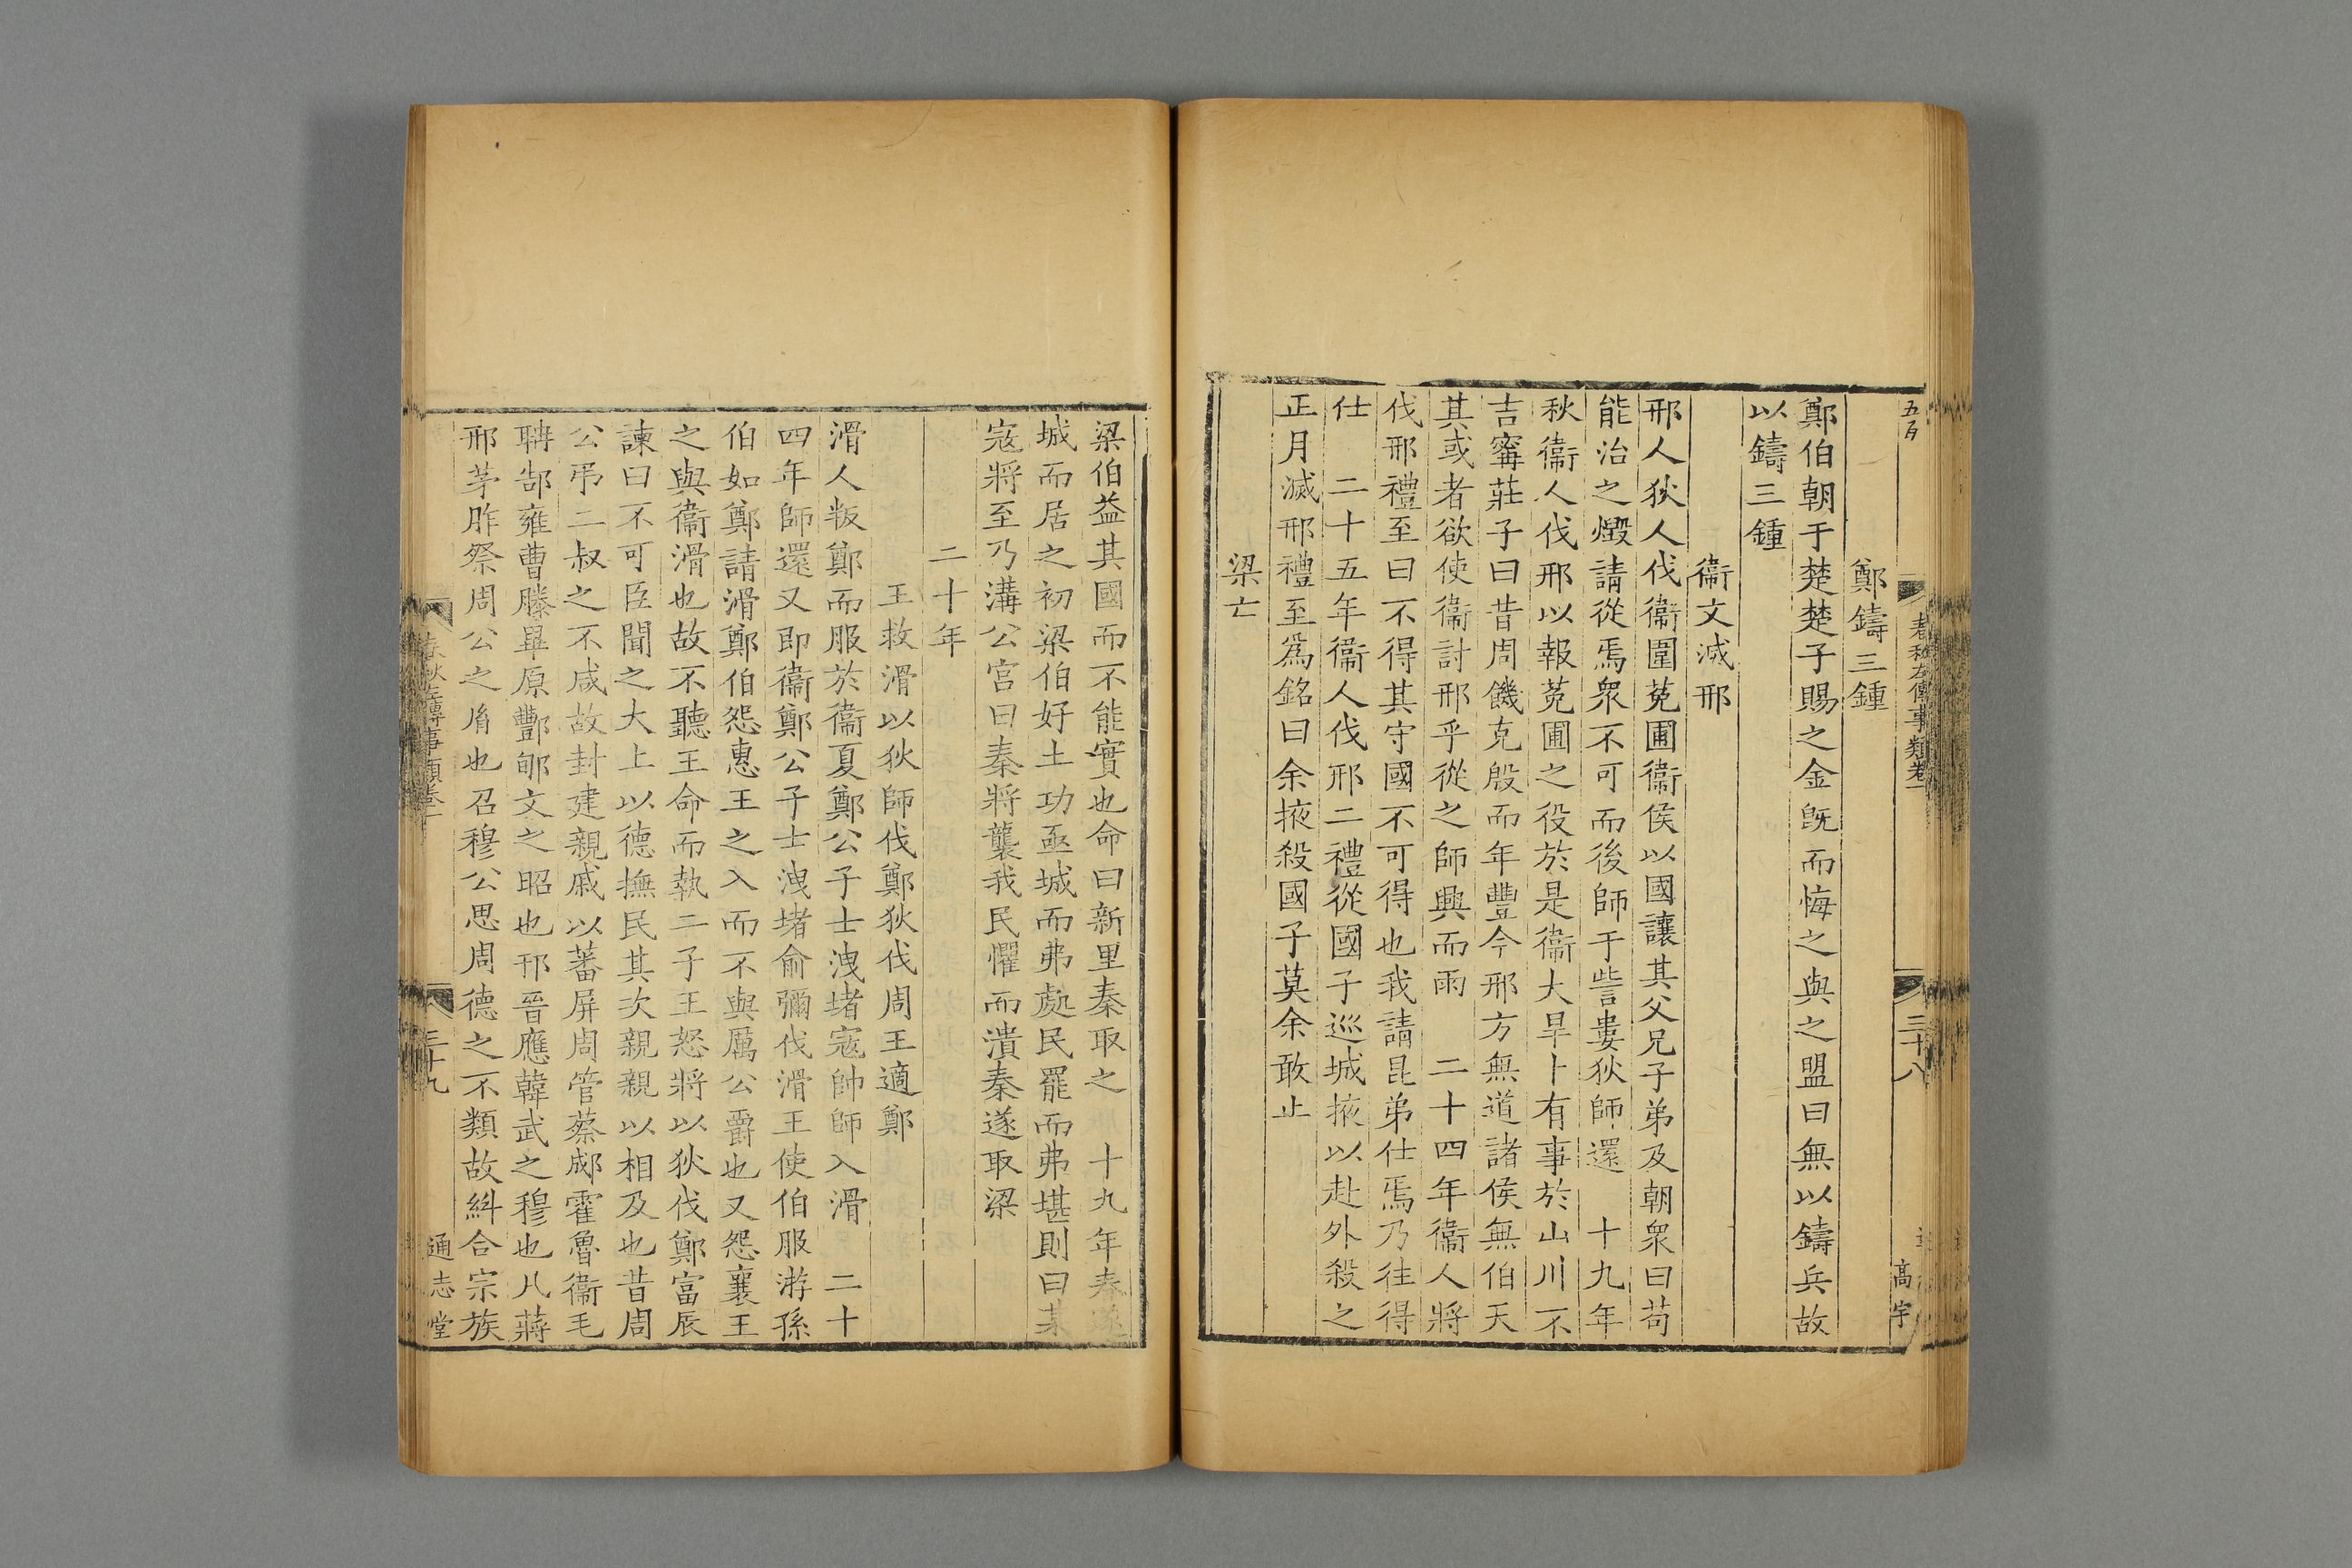 五百
春秋左傳事類卷一
三十八
高宇
鄭鑄三鍾
鄭伯朝于楚楚子賜之金旣而悔之與之盟曰無以鑄兵故
以鑄三鍾
衞文滅邢
邢人狄人伐衞圍菟圃衞侯以國讓其父兄子弟及朝衆曰苟
能治之燬請從焉衆不可而後師于訾婁狄師還　十九年
秋衞人伐邢以報菟圃之役於是衞大旱卜有事於山川不
吉甯莊子曰昔周饑克殷而年豐今邢方無道諸侯無伯天
其或者欲使衞討邢乎從之師興而雨　二十四年衞人將
伐邢禮至曰不得其守國不可得也我請昆弟仕焉乃往得
仕　二十五年衞人伐邢二禮從國子巡城掖以赴外殺之
正月滅邢禮至爲銘曰余掖殺國子莫余敢止
梁亡
梁伯益其國而不能實也命曰新里秦取之　十九年春遂
城而居之初梁伯好土功亟城而弗處民罷而弗堪則曰某
寇將至乃溝公宮曰秦將襲我民懼而潰秦遂取梁
二十年
王救滑以狄師伐鄭狄伐周王適鄭
滑人叛鄭而服於衞夏鄭公子士洩堵寇帥師入滑　二十
四年師還又卽衞鄭公子士洩堵俞彌伐滑王使伯服游孫
伯如鄭請滑鄭伯怨惠王之入而不與厲公爵也又怨襄王
之與衞滑也故不聽王命而執二子王怒將以狄伐鄭富辰
諫曰不可臣聞之大上以德撫民其次親親以相及也昔周
公弔二叔之不咸故封建親戚以蕃屏周管蔡郕霍魯衞毛
聃郜雍曹滕畢原酆郇文之昭也邘晉應韓武之穆也凡蔣
邢茅胙祭周公之胤也召穆公思周德之不類故糾合宗族
春秋左傳事類卷一
三十九
通志堂